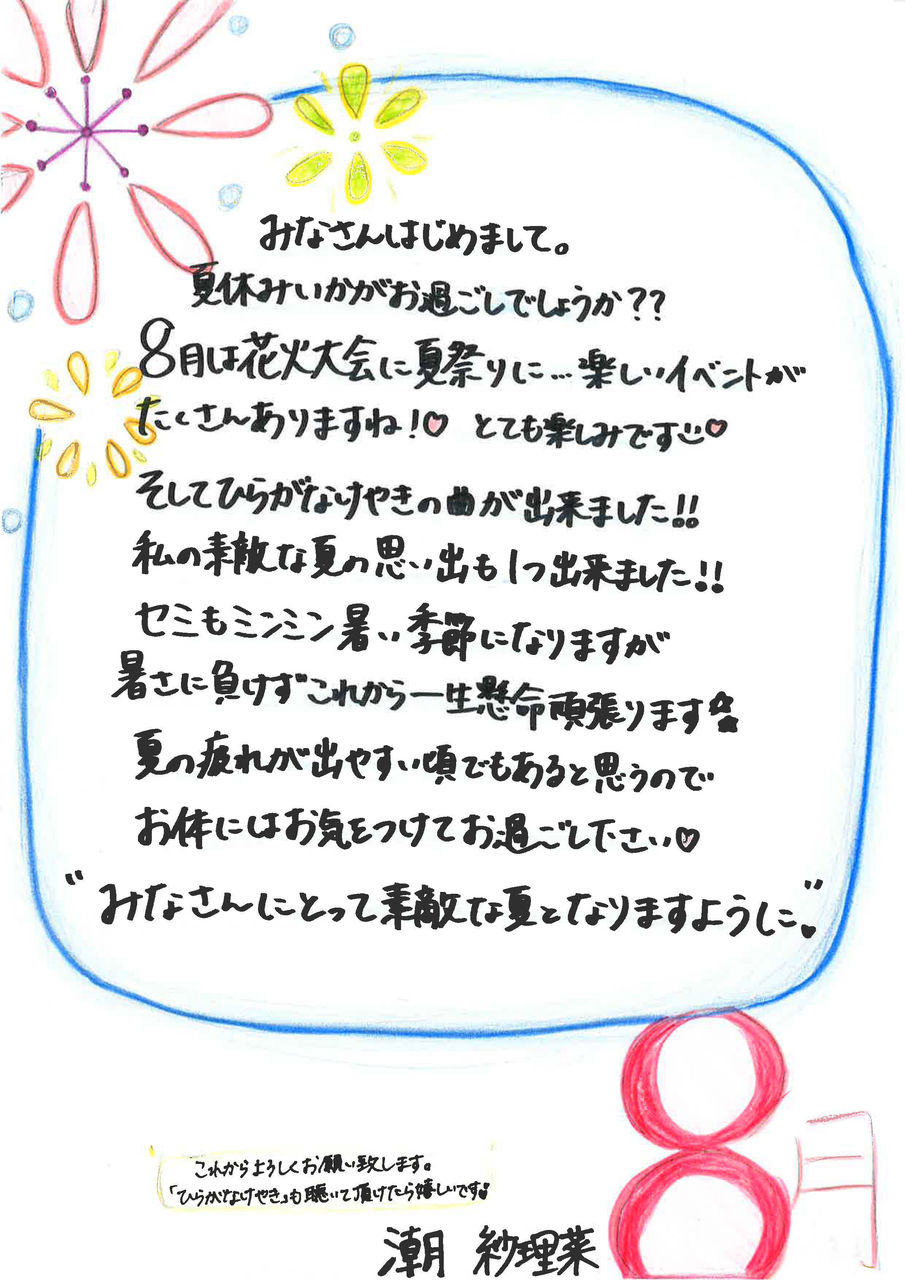 みなさんはじめまして。
夏休みいかがお過ごしでしょうか??
8月は花火大会に夏祭りに…楽しいイベントが
たくさんありますね!♡ とても楽しみです♡
そしてひらがなけやきの曲が出来ました!!
私の素敵な夏の思い出も1つ出来ました!!
セミもミンミン暑い季節になりますが
暑さに負けずこれから一生懸命頑張ります
夏の疲れが出やすい頃でもあると思うので
お体にはお気をつけてお過ごし下さい♡
"みなさんにとって素敵な夏となりますように♥"
8月
これからよろしくお願い致します。
「ひらがなけやき」も聴いて頂けたら嬉しいです
潮 紗理菜